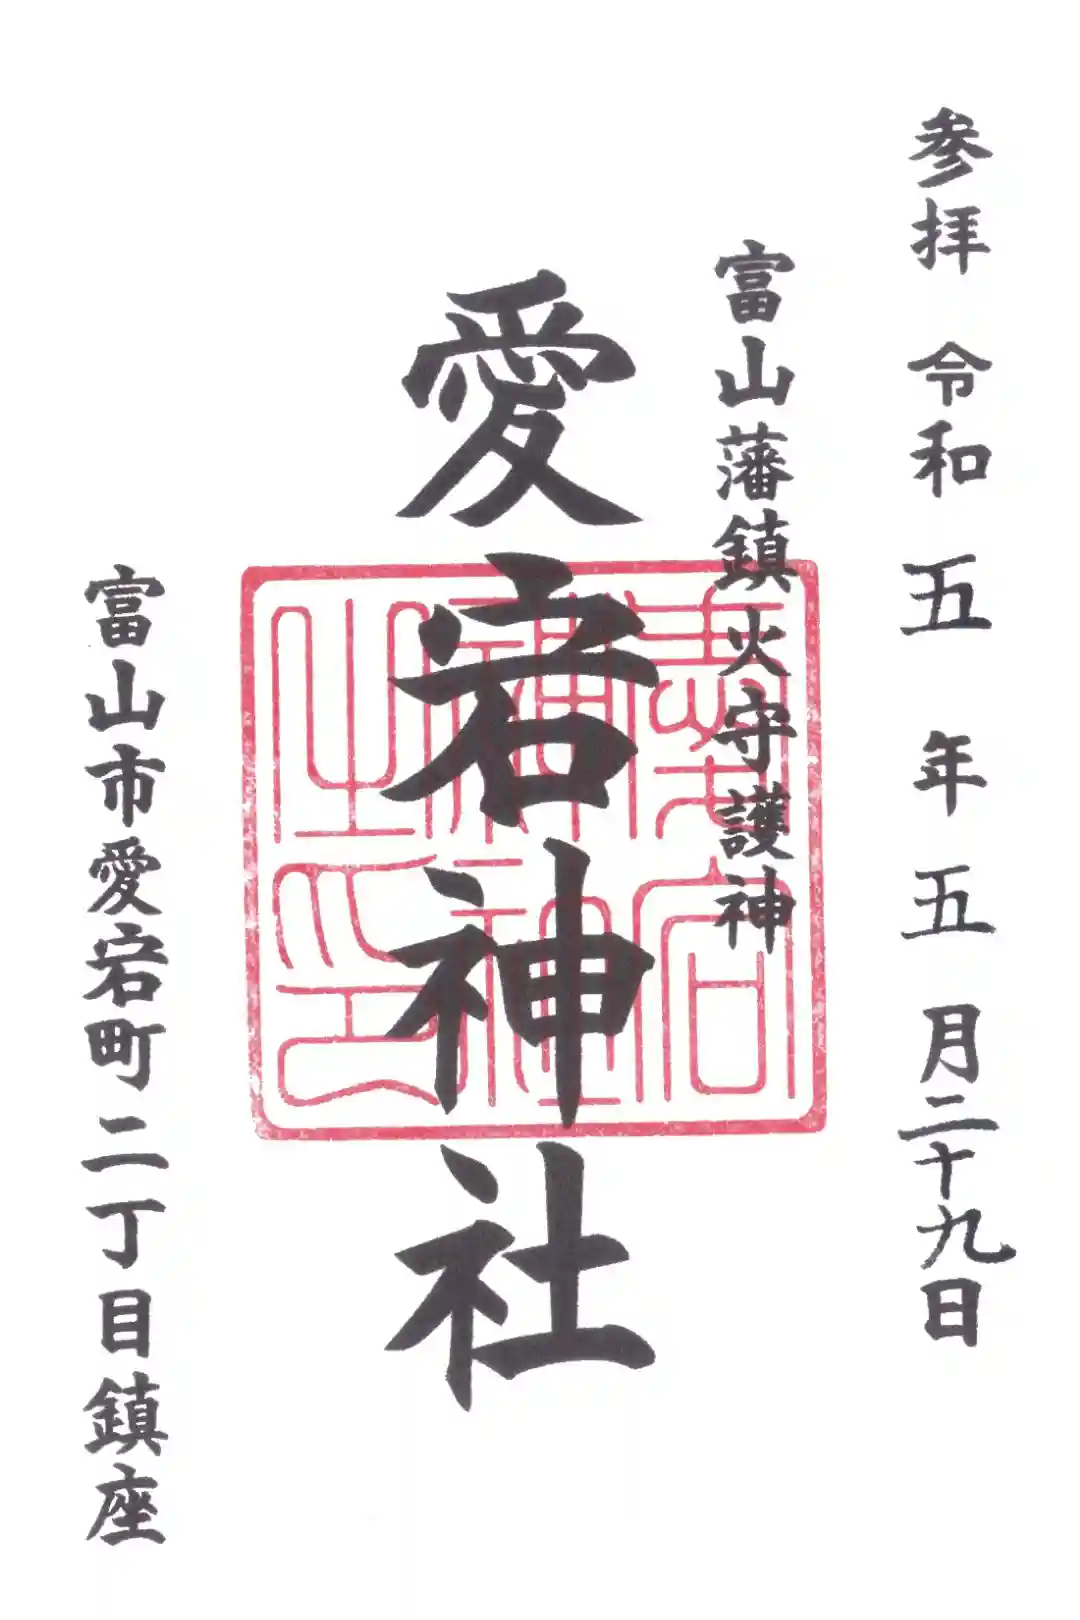 参拝 令和 五 年 五 月二十九日
富山藩鎮火守護神
愛宕神社
愛宕
神社
之印
富山市愛宕町二丁目鎮座